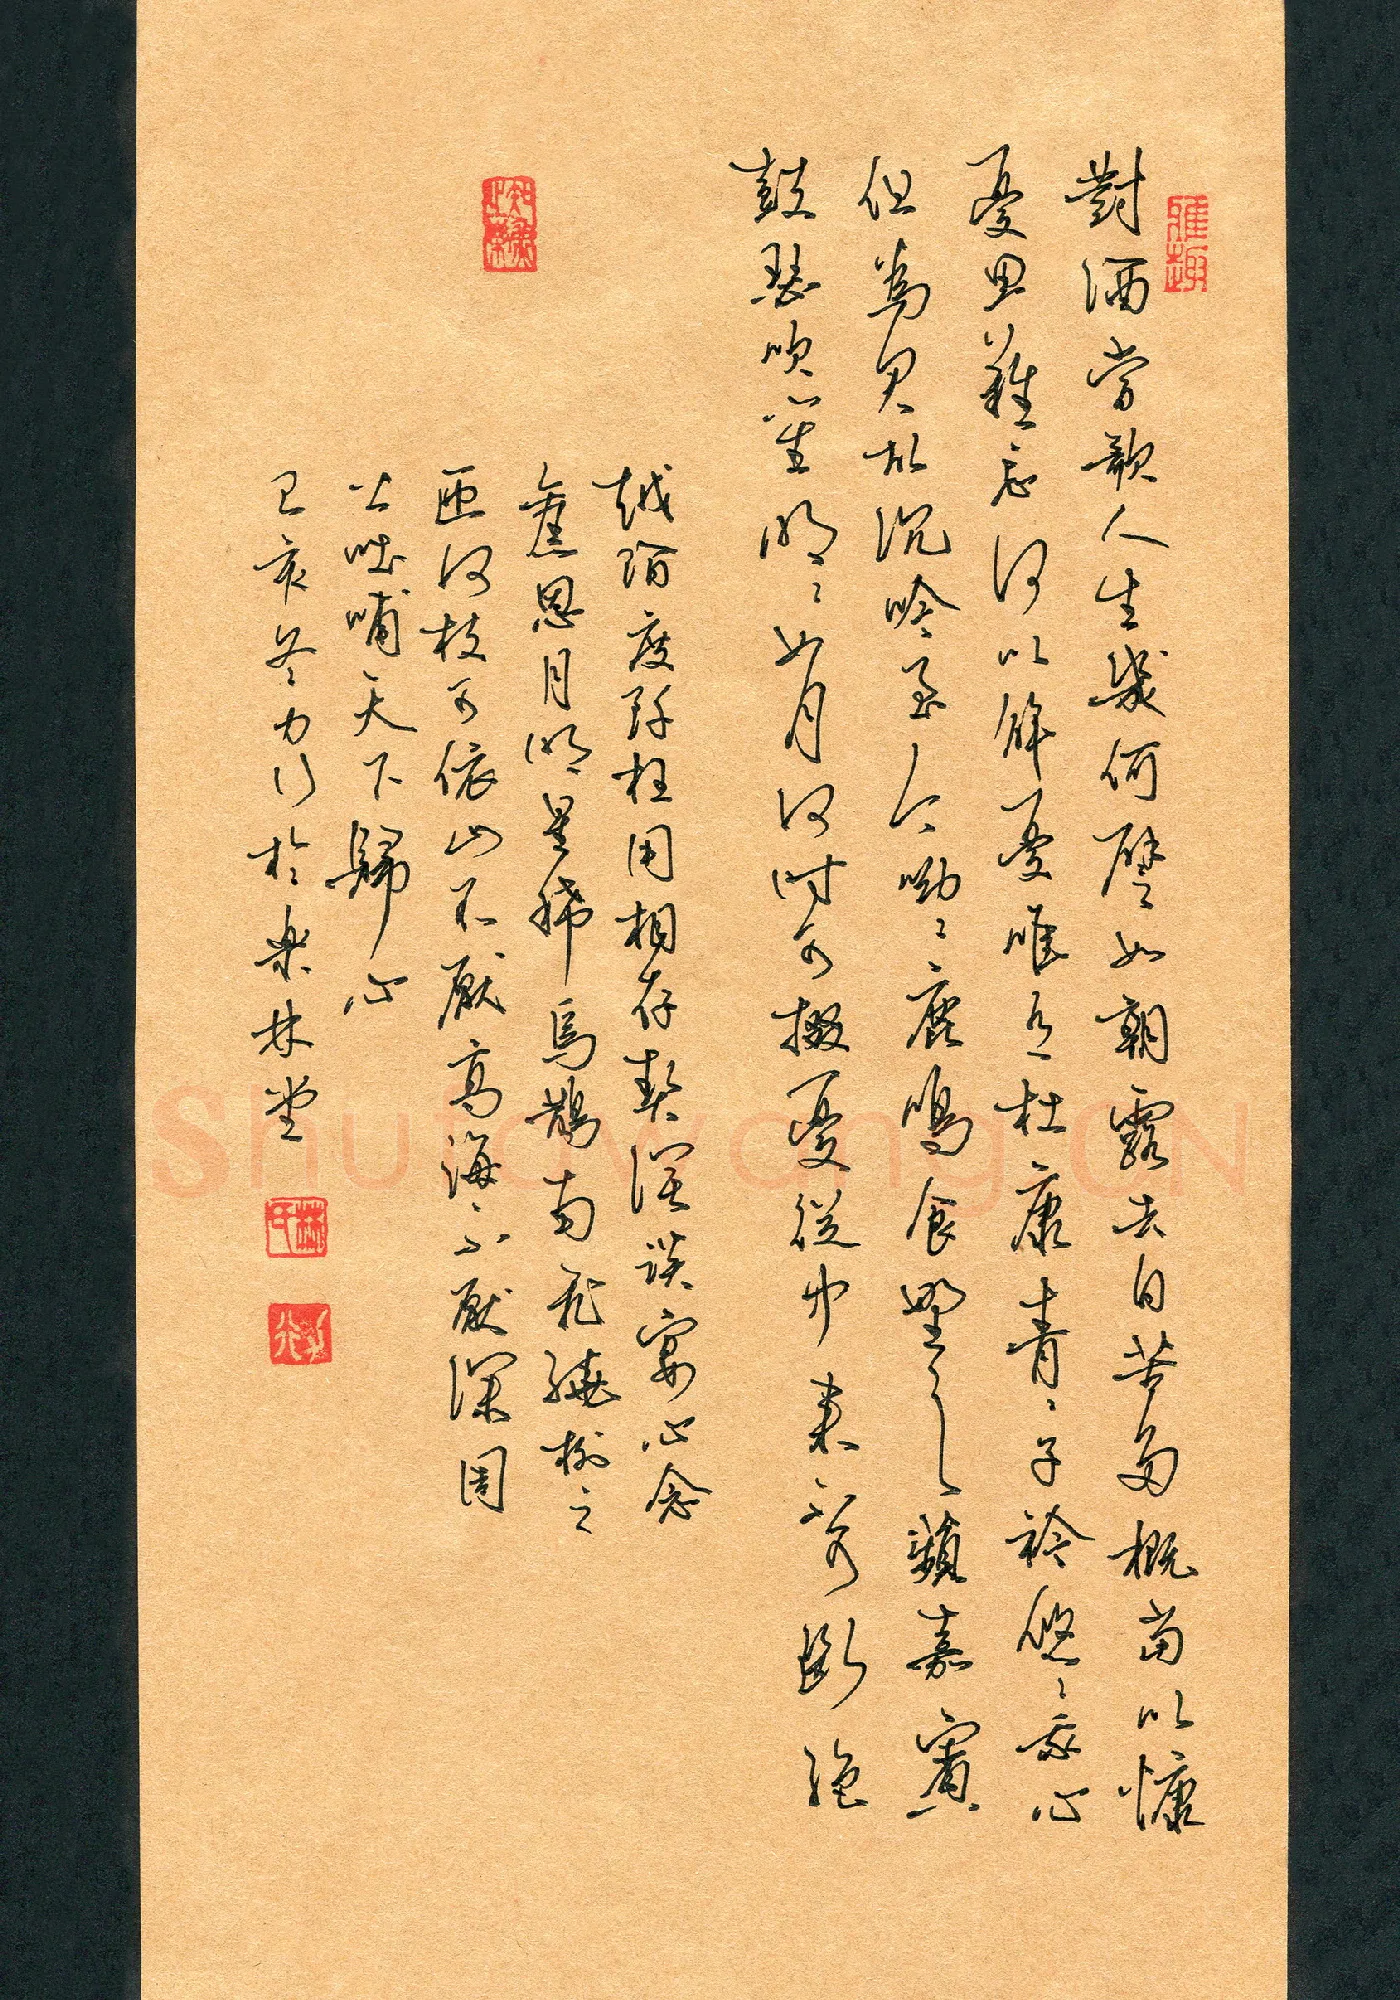 對酒當歌人生幾何譬如朝露去日苦多概當以慷
憂思難忘何以解憂唯有杜康青〻子衿悠〻我心
但為君故沉吟至今呦〻鹿鳴食野之蘋我有嘉賓
鼓瑟吹笙明〻如月何時可掇憂從中來不可斷絕
越陌度阡枉用相存契闊談宴心念
舊恩月明星稀烏鵲南飛繞樹三
匝何枝可依山不厭高海不厭深周
公吐哺天下歸心
己亥冬力行於樂林堂
雅趣
林氏
力行
Shufawang.CN